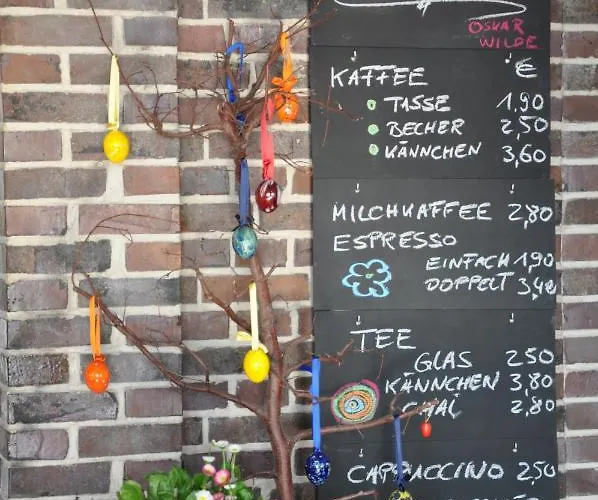 OSKAR
WILDE
KAFFEE €
TASSE 1,90
BECHER 2,50
KÄNNCHEN 3,60
MILCHKAFFEE 2,80
ESPRESSO
EINFACH 1,90
DOPPELT 3,40
TEE
GLAS 2 50
KÄNNCHEN 3,80
CHAI 2,80
CAPPUCCINO 2,50